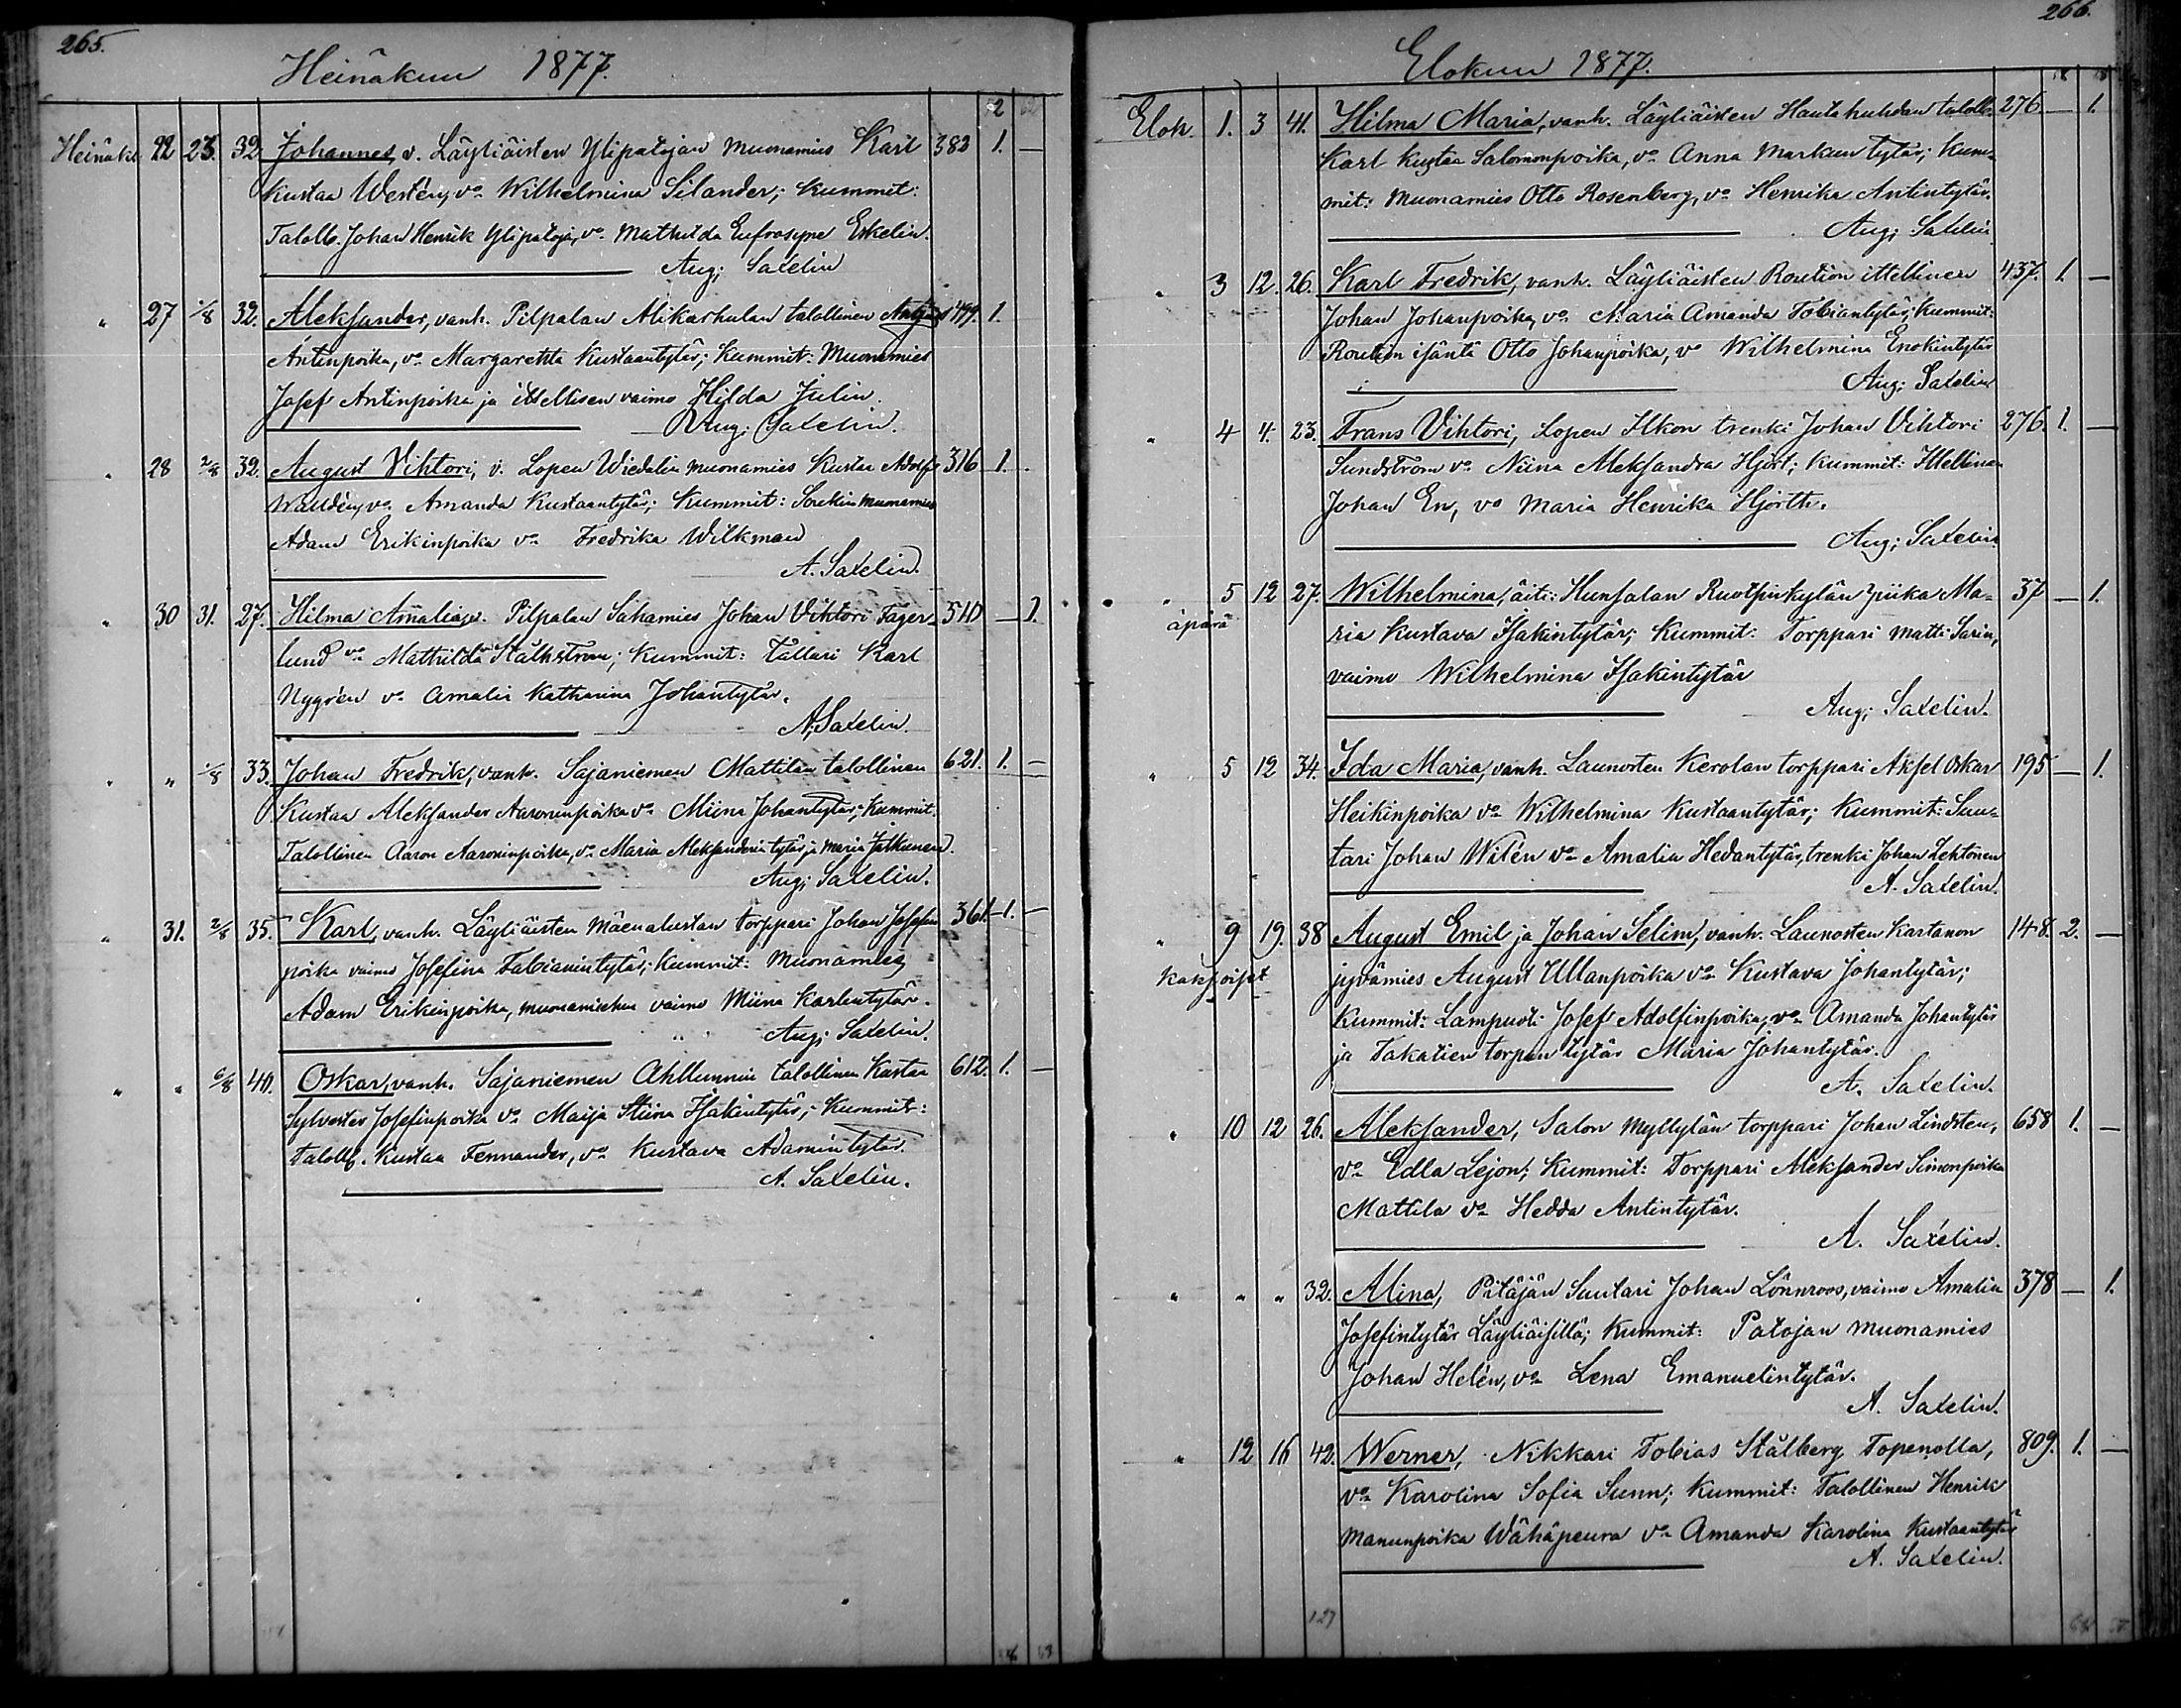 265.
Heinäkuu 1877.
Heinäk. 22 23. 32. Johannes, v. Läyliäisten Ylipatojan muonamies Karl 382 1. —
Kustaa Westén, vo Wilhelmina Silander; Kummit:
Taloll. Johan Henrik Ylipatoja, vo Mathilda Eufrosyne Eskelin.
Aug. Saxelin
" 27 1/8 32. Aleksander, vanh. Pilpalan Alikarhulan talollinen 499. 1.
Antinpoika, vo Margaretha Kustaantytär; Kummit: Muonamies
Josef Antinpoika ja ittellisen vaimo Hilda Julin.
Aug. Saxelin.
" 28 2/8 32. August Vihtori, v. Lopen Wiedalin muonamies Kustaa Adolf 316 1.
Walldén, vo Amanda Kustaantytär; Kummit: muonamies
Adam Erikinpoika vo Fredrika Wilkman
A. Saxelin.
" 30 31. 27. Hilma Amalia, Pilpalan Sahamies Johan Viktori Fager- 510 — 1.
lund vo Mathilda Stålhström; Kummit: Tallari Karl
Nygrén vo Amalia Katharina Johantytär.
A. Saxelin.
" " 1/8 33. Johan Fredrik, vanh. Sajaniemen Mattilan talollinen 621. 1. —
Kustaa Aleksander Aaroninpoika vo Miina Johantytär; Kummit:
Talollinen Aaron Aaroninpoika, vo Maria Aleksanderin tytär ja Maria Jatkunen.
Aug. Saxelin.
" 31. 2/8 35. Karl, vanh. Läyliäisten Mäenalustan torppari Johan Josefin 361. 1. —
poika vaimo Josefina Fabianintytär; Kummit: Muonamies
Adam Erikinpoika, muonamiehen vaimo Miina Karlintytär.
Aug. Saxelin.
" " 6/8 40. Oskar, vanh. Sajaniemen Ahllunnin talollinen Kustaa 612. 1. —
Sylvester Josefinpoika vo Maija Stiina Isakintytär; Kummit:
taloll. Kustaa Fennander, vo Kustava Adamintytär.
A. Saxelin.
266.
Elokuu 1877.
Elok. 1. 3 41. Hilma Maria, vanh. Läyliäisten Hautahuhdan taloll. 276 — 1.
Karl Kustaa Salomonpoika, vo Anna Markuntytär; Kum-
mit: Muonamies Otto Rosenberg, vo Henrika Antintytär.
Aug. Saxelin
" 3 12. 26. Karl Fredrik, vanh. Läyliäisten Roution ittellinen 437. 1. —
Johan Johanpoika, vo Maria Amanda Tobiantytär; Kummit:
Roution isäntä Otto Johanpoika, vo Wilhelmina Enokintytär
Aug. Saxelin
" 4 4. 23. Frans Vihtori, Lopen Ilkon trenki Johan Vihtori 276. 1. —
Sundström vo Niina Aleksandra Hjort; Kummit: Ittellinen
Johan En, vo Maria Henrika Hjorth.
Aug. Saxelin
" 5 12 27. Wilhelmina, äiti: Hunsalan Ruotsinkylän piika Ma- 37 — 1.
äpärä
ria Kustava Isakintytär; Kummit: Torppari Matti Sarin,
vaimo Wilhelmina Isakintytär
Aug. Saxelin.
" 5 12 34. Ida Maria, vanh. Launosten Kerolan torppari Aksel Oskar 195 — 1.
Heikinpoika vo Wilhelmina Kustaantytär; Kummit: Suu-
tari Johan Wilén vo Amalia Hedantytär, trenki Johan Lehtonen
A. Saxelin.
" 9 19. 38 August Emil ja Johan Selim, vanh. Launosten Kartanon 148. 2. —
Kaksoiset
jyvämies August Ullanpoika vo Kustava Johantytär;
Kummit: Lampuoti Josef Adolfinpoika, vo Amanda Johantytär
ja Takatien torpan tytär Maria Johantytär.
A. Saxelin.
" 10 12 26. Aleksander, Salon Myllytän torppari Johan Lindsten, 658 1. —
vo Edla Lejon; Kummit: Torppari Aleksander Simonpoika
Mattila vo Hedda Antintytär.
A. Saxelin.
" " " 32. Alina, Pitäjän Suutari Johan Lönnroos, vaimo Amalia 378 — 1.
Josefintytär Läyliäisillä; Kummit: Patojan muonamies
Johan Helén, vo Lena Emanuelintytär.
A. Saxelin.
" 12 16 42. Werner, Nikkari Tobias Stålberg Topenolla, 809. 1. —
vo Karolina Sofia Sunn; Kummit: Talollinen Henrik
Manunpoika Wähäpeura vo Amanda Karolina Kustaantytär
A. Saxelin.
127